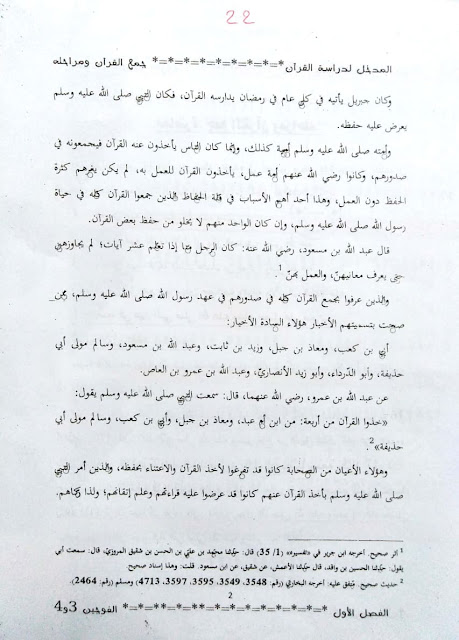 22
المدخل لدراسة القرآن*=*=*=*=*=*=*=*=* جمع القرآن ومراحله
وكان جبريل يأتيه في كل عام في رمضان يدارسه القرآن، فكان النبي صلى الله عليه وسلم
يعرض عليه حفظه.
وأمته صلى الله عليه وسلم أمية كذلك، وإنما كان الناس يأخذون عنه القرآن فيجمعونه في
صدورهم، وكانوا رضي الله عنهم أمة عمل، يأخذون القرآن للعمل به، لم يكن يغرهم كثرة
الحفظ دون العمل، وهذا أحد أهم الأسباب في قلة الحفاظ الذين جمعوا القرآن كله في حياة
رسول الله صلى الله عليه وسلم، وإن كان الواحد منهم لا يخلو من حفظ بعض القرآن.
قال عبد الله بن مسعود، رضي الله عنه: كان الرجل منا إذا تعلم عشر آيات؛ لم يجاوزهن
حتى يعرف معانيهن، والعمل بهن1.
والذين عرفوا بجمع القرآن كله في صدورهم في عهد رسول الله صلى الله عليه وسلم، ممن
صحت بتسميتهم الأخبار هؤلاء السادة الأخيار:
أبي بن كعب، ومعاذ بن جبل، وزيد بن ثابت، وعبد الله بن مسعود، وسالم مولى أبي
حذيفة، وأبو الدرداء، وأبو زيد الأنصاري، وعبد الله بن عمرو بن العاص.
عن عبد الله بن عمرو، رضي الله عنهما، قال: سمعت النبي صلى الله عليه وسلم يقول:
«خذوا القرآن من أربعة: من ابن أم عبد، ومعاذ بن جبل، وأبي بن كعب، وسالم مولى أبي
حذيفة»2.
وهؤلاء الأعيان من الصحابة كانوا قد تفرغوا لأخذ القرآن والاعتناء بحفظه، والذين أمر النبي
صلى الله عليه وسلم بأخذ القرآن عنهم كانوا قد عرضوا عليه قراءتهم وعلم إتقانهم؛ ولذا زكاهم.
1 أثر صحيح. أخرجه ابن جرير في «تفسيره» (1/ 35) قال: حدثنا محمد بن علي بن الحسن بن شقيق المروزي، قال: سمعت أبي
يقول: حدثنا الحسين بن واقد، قال حدثنا الأعمش، عن شقيق، عن ابن مسعود. قلت: وهذا إسناد صحيح.
2 حديث صحيح. متفق عليه: أخرجه البخاري (رقم: 3548، 3549، 3595، 3597، 4713) ومسلم (رقم: 2464)
2
الفصل الأول *=*=*=*=*=*=**=*=*=*=*=*=* الفوجين 3و4